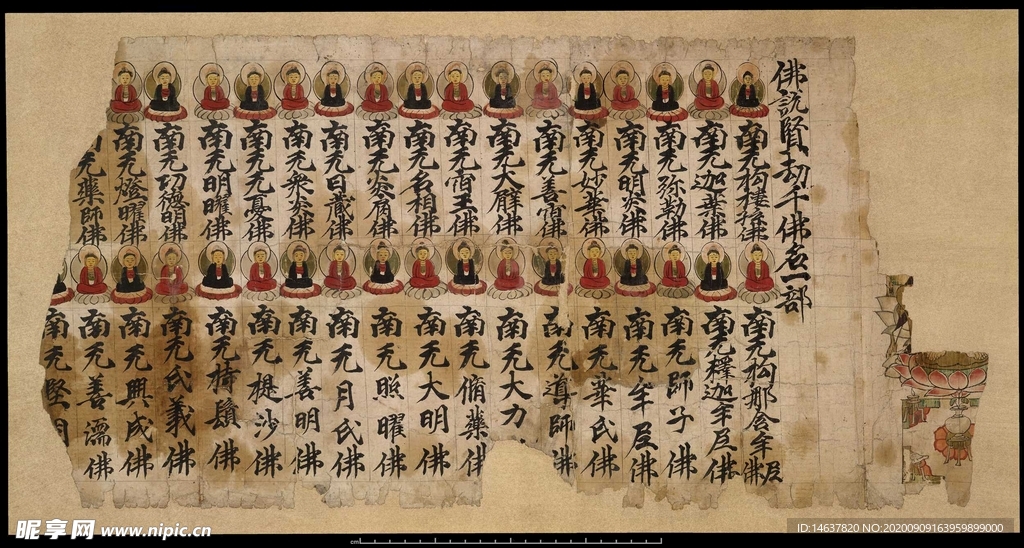 佛說賢劫千佛名一部
南无拘樓孫佛
南无迦葉佛
南无弥勒佛
南无明炎佛
南无妙華佛
南无善宿佛
南无大臂佛
南无宿王佛
南无名相佛
南无炎肩佛
南无日藏佛
南无衆炎佛
南无无憂佛
南无明曜佛
南无功德明佛
南无燈曜佛
无藥師佛
南无拘那含牟尼佛
南无釋迦牟尼佛
南无師子佛
南无牟尼佛
南无華氏佛
南无導師佛
南无大力佛
南无脩藥佛
南无大明佛
南无照曜佛
南无月氏佛
南无善明佛
南无提沙佛
南无持鬘佛
南无氏義佛
南无興成佛
南无善濡佛
南无堅明
昵享网 www.nipic.cn
cm
ID:14637820 NO:20200909163959899000